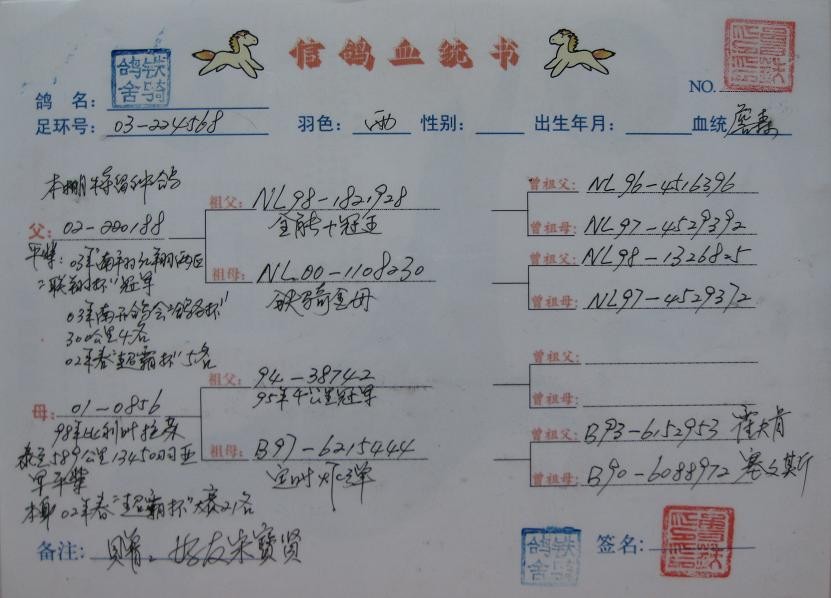 信鸽血统书
铁骑鸽舍
NO.
鸽名：
足环号：03-224568 羽色：雨 性别： 出生年月： 血统
本棚特留种鸽
父：02-220188
祖父：NL98-1821928
全能十冠王
祖母：NL00-1108230
铁骑童母
曾祖父：NL96-4516396
曾祖母：NL97-4529392
曾祖父：NL98-1326825
曾祖母：NL97-4529372
03年南开
"联翔杯"冠军
03年南开鸽会"鸽友杯"
300公里4名
02年春"超霸杯"5名
母：01-0856
98年比利时拉来
589公里13450羽亚
军平辈
本身02年春"超霸杯"大赛21名
祖父：94-38742
95年千公里冠军
祖母：B97-6215444
定时炸弹
曾祖父：
曾祖母：
曾祖父：B93-6152953 霍夫肯
曾祖母：B90-6088972 塞文斯
备注：赠：好友朱寶贤
铁骑鸽舍
签名：